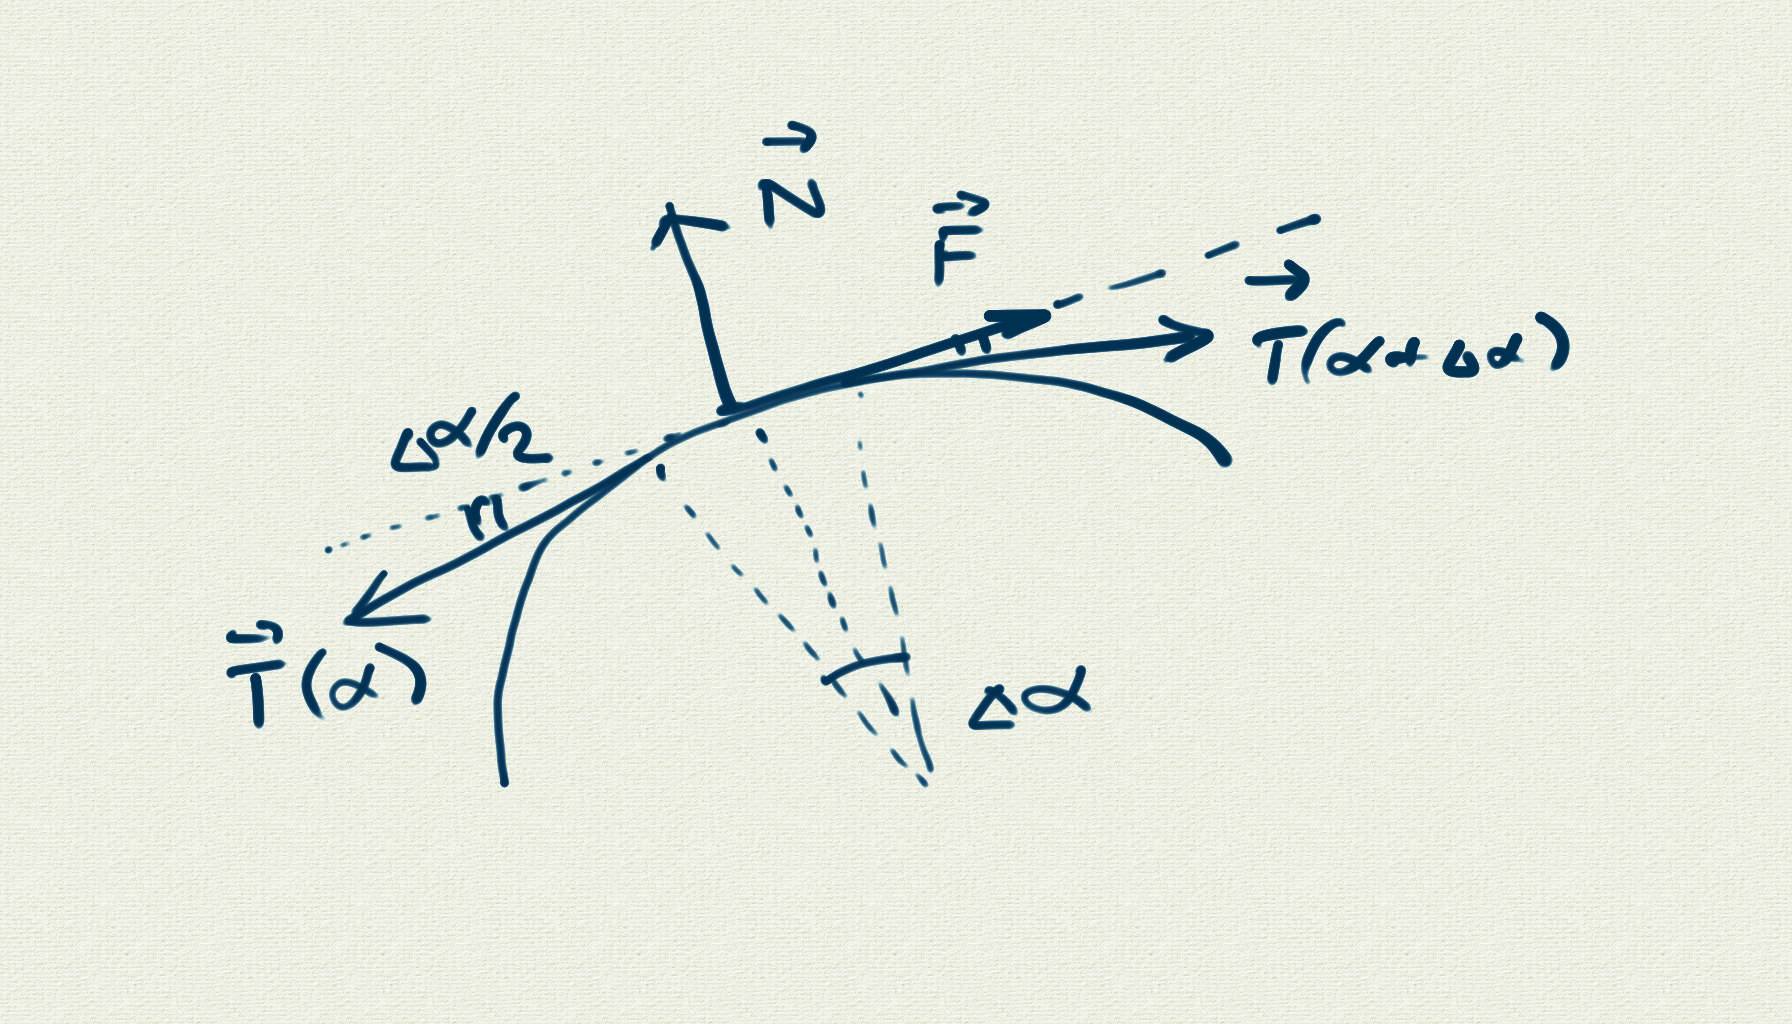 N⃗
F⃗
T⃗(α+Δα)
Δα/2
T⃗(α)
Δα